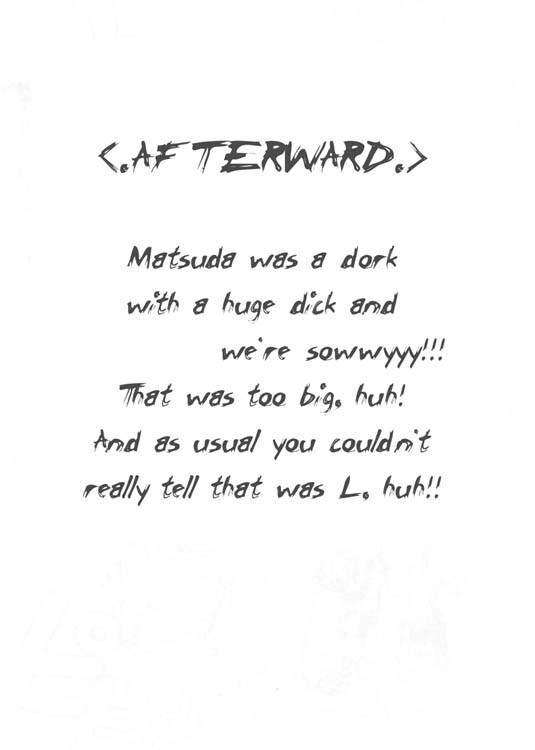 <.AFTERWARD.>
Matsuda was a dork
with a huge dick and
we're sowwyyy!!!
That was too big, huh!
And as usual you couldn't
really tell that was L, huh!!